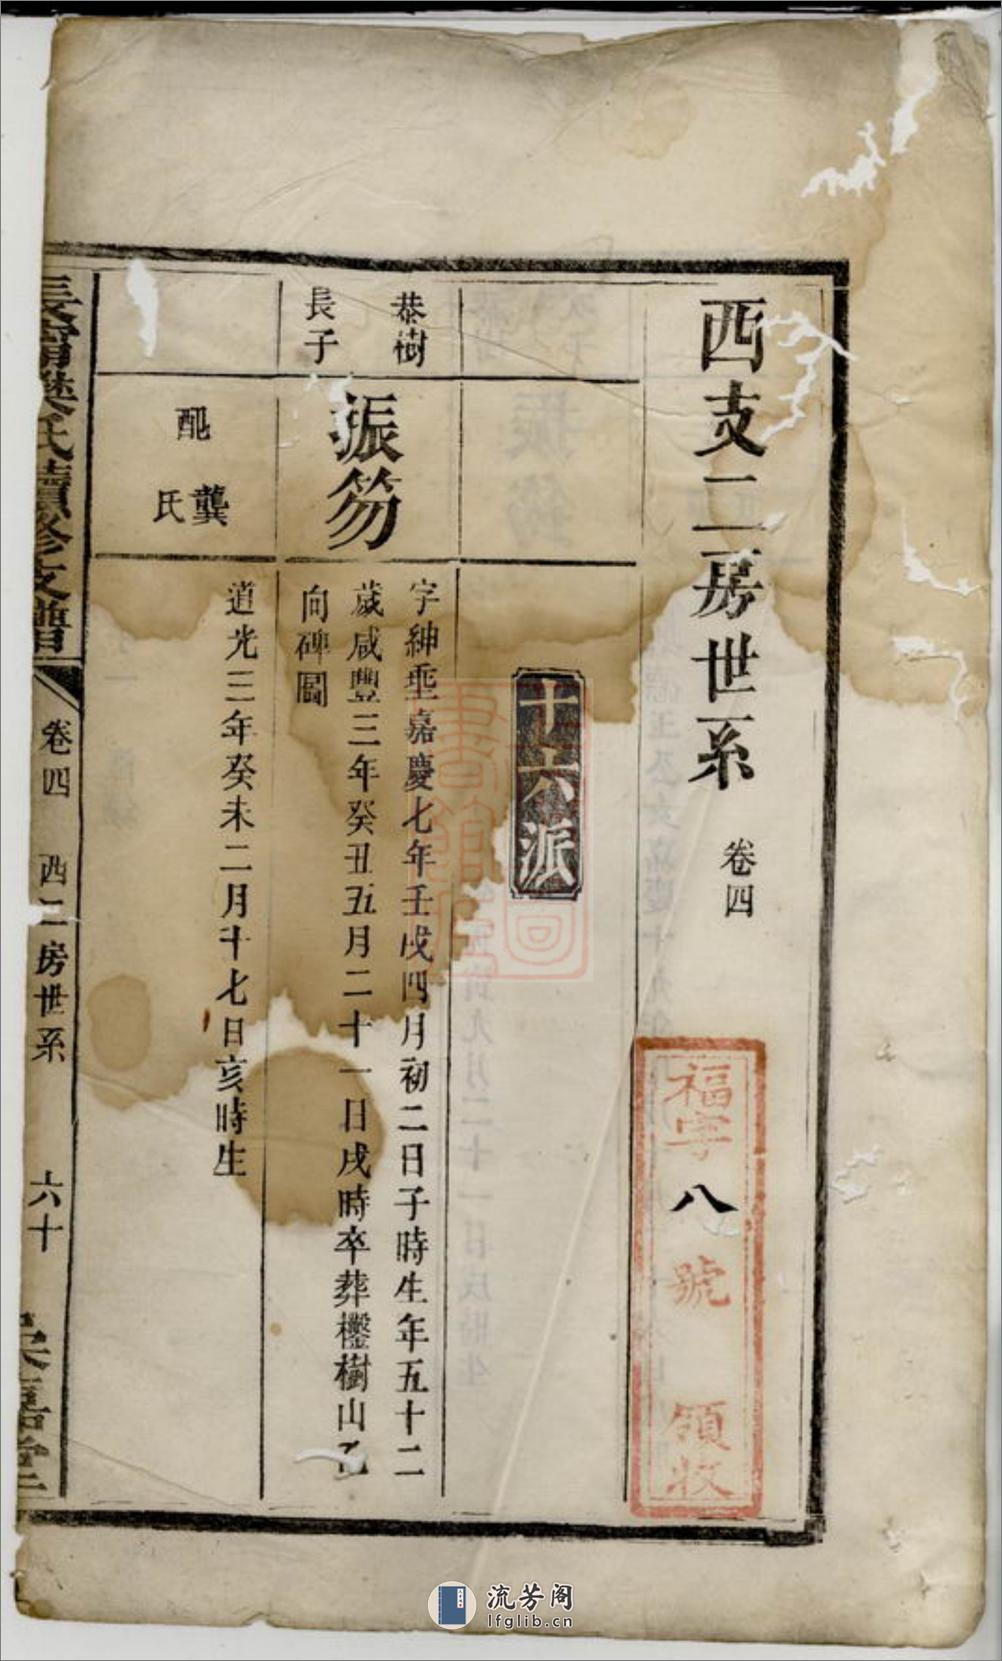 西支二房世系 卷四
福字八號 領收
十六派
恭樹
長子
振笏
字紳垂嘉慶七年壬戌四月初二日子時生年五十二
歲咸豐三年癸丑五月二十一日戌時卒葬鑿樹山乙
向碑圖
配龔氏
道光三年癸未二月十七日亥時生
長甯樊氏續修支譜
卷四 西二房世系
六十
圖書館
流芳阁
lfglib.cn